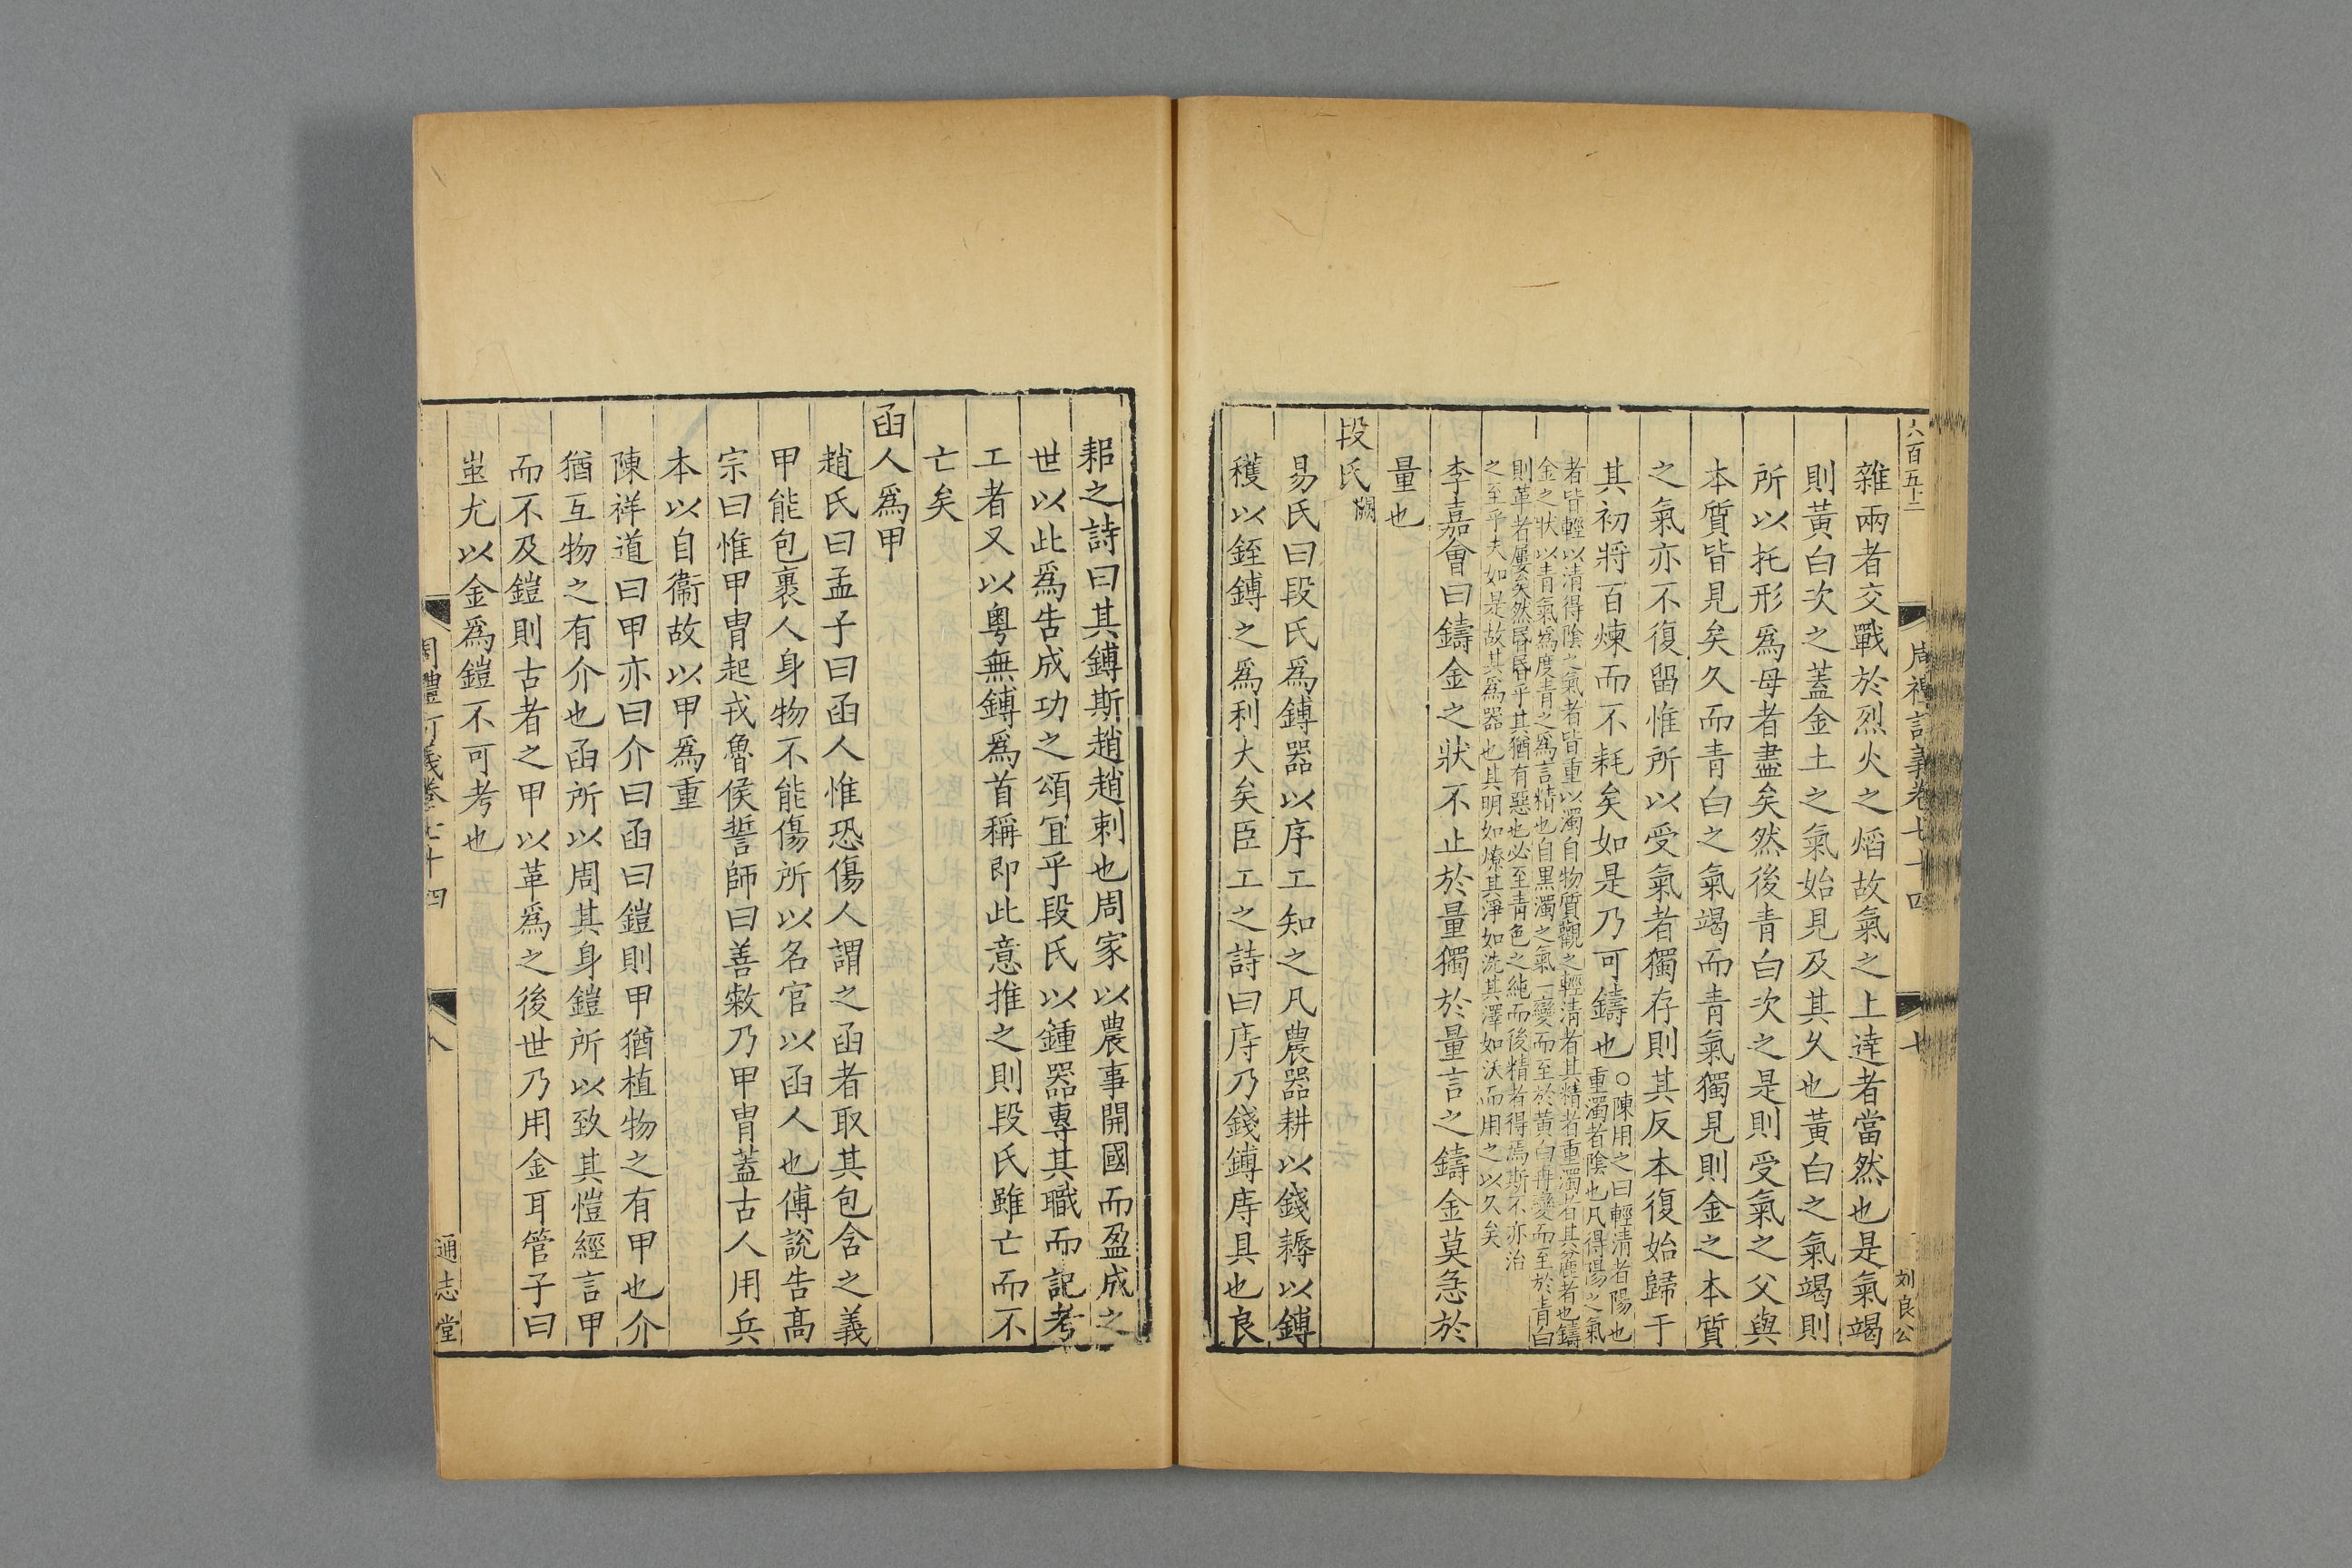 六百五十二
周禮訂義卷七十四
七
刘良公
雜兩者交戰於烈火之熖故氣之上逹者當然也是氣竭
則黃白次之蓋金土之氣始見及其久也黃白之氣竭則
所以托形爲母者盡矣然後青白次之是則受氣之父與
本質皆見矣久而青白之氣竭而青氣獨見則金之本質
之氣亦不復留惟所以受氣者獨存則其反本復始歸于
其初將百煉而不耗矣如是乃可鑄也○陳用之曰輕清者陽也
重濁者陰也凡得陽之氣
者皆輕以清得陰之氣者皆重以濁自物質觀之輕清者其精者重濁者其麄者也鑄
金之狀以青氣爲度青之爲言精也自黑濁之氣一變而至於黃白再變而至於青白
則革者屢矣然㬱㬱乎其猶有惡也必至青色之純而後精者得焉斯不亦治
之至乎夫如是故其爲器也其明如燎其淨如洗其澤如沃而用之以久矣
李嘉會曰鑄金之狀不止於量獨於量言之鑄金莫急於
量也
段氏闕
易氏曰段氏爲鎛器以序工知之凡農器耕以錢耨以鎛
穫以銍鎛之爲利大矣臣工之詩曰庤乃錢鎛庤具也良
耜之詩曰其鎛斯趙趙剌也周家以農事開國而盈成之
世以此爲告成功之頌宜乎段氏以鍾器專其職而記考
工者又以粵無鎛爲首稱即此意推之則段氏雖亡而不
亡矣
函人爲甲
趙氏曰孟子曰函人惟恐傷人謂之函者取其包含之義
甲能包裹人身物不能傷所以名官以函人也傅說告髙
宗曰惟甲冑起戎魯侯誓師曰善敹乃甲冑蓋古人用兵
本以自衞故以甲爲重
陳祥道曰甲亦曰介曰函曰鎧則甲猶植物之有甲也介
猶互物之有介也函所以周其身鎧所以致其愷經言甲
而不及鎧則古者之甲以革爲之後世乃用金耳管子曰
蚩尤以金爲鎧不可考也
周禮訂義卷七十四
八
通志堂